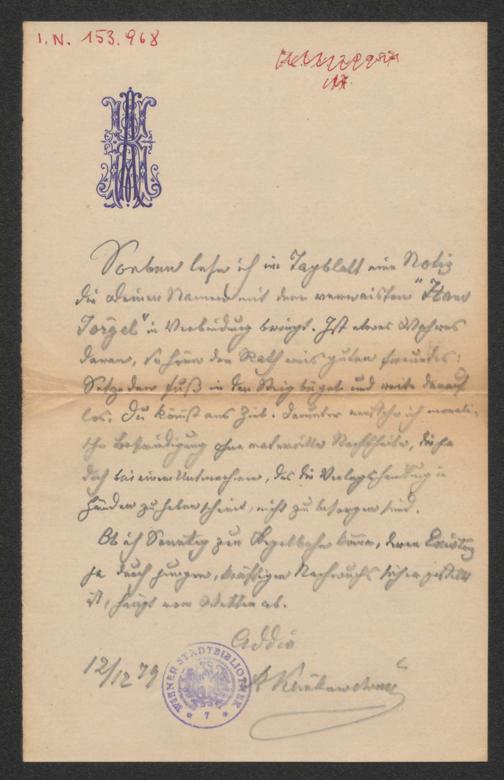 I.N. 153.968
Soeben lese ich im Tagblatt eine Notiz
die Deinen Namen mit dem verwaisten "Hans
Jörgel" in Verbindung bringt. Ist etwas Wahres
daran, so höre den Rath eines guten Freundes:
Setze den Fuß in den Steigbügel und reite darauf
los. Du kömst ans Ziel. Darunter verstehe ich morali-
sche Befriedigung ohne materielle Nachtheile, die ja
doch bei einem Unternehmen, das die Verlagshandlung in
Händen zu haben scheint, nicht zu besorgen sind.
Ob ich Samstag zur Kegelbahn komme, deren Existenz
ja durch jungen, kräftigen Nachwuchs sicher gestellt
ist, hängt vom Wetter ab.
Addio
12/12 79
WIENER STADTBIBLIOTHEK
* 7 *